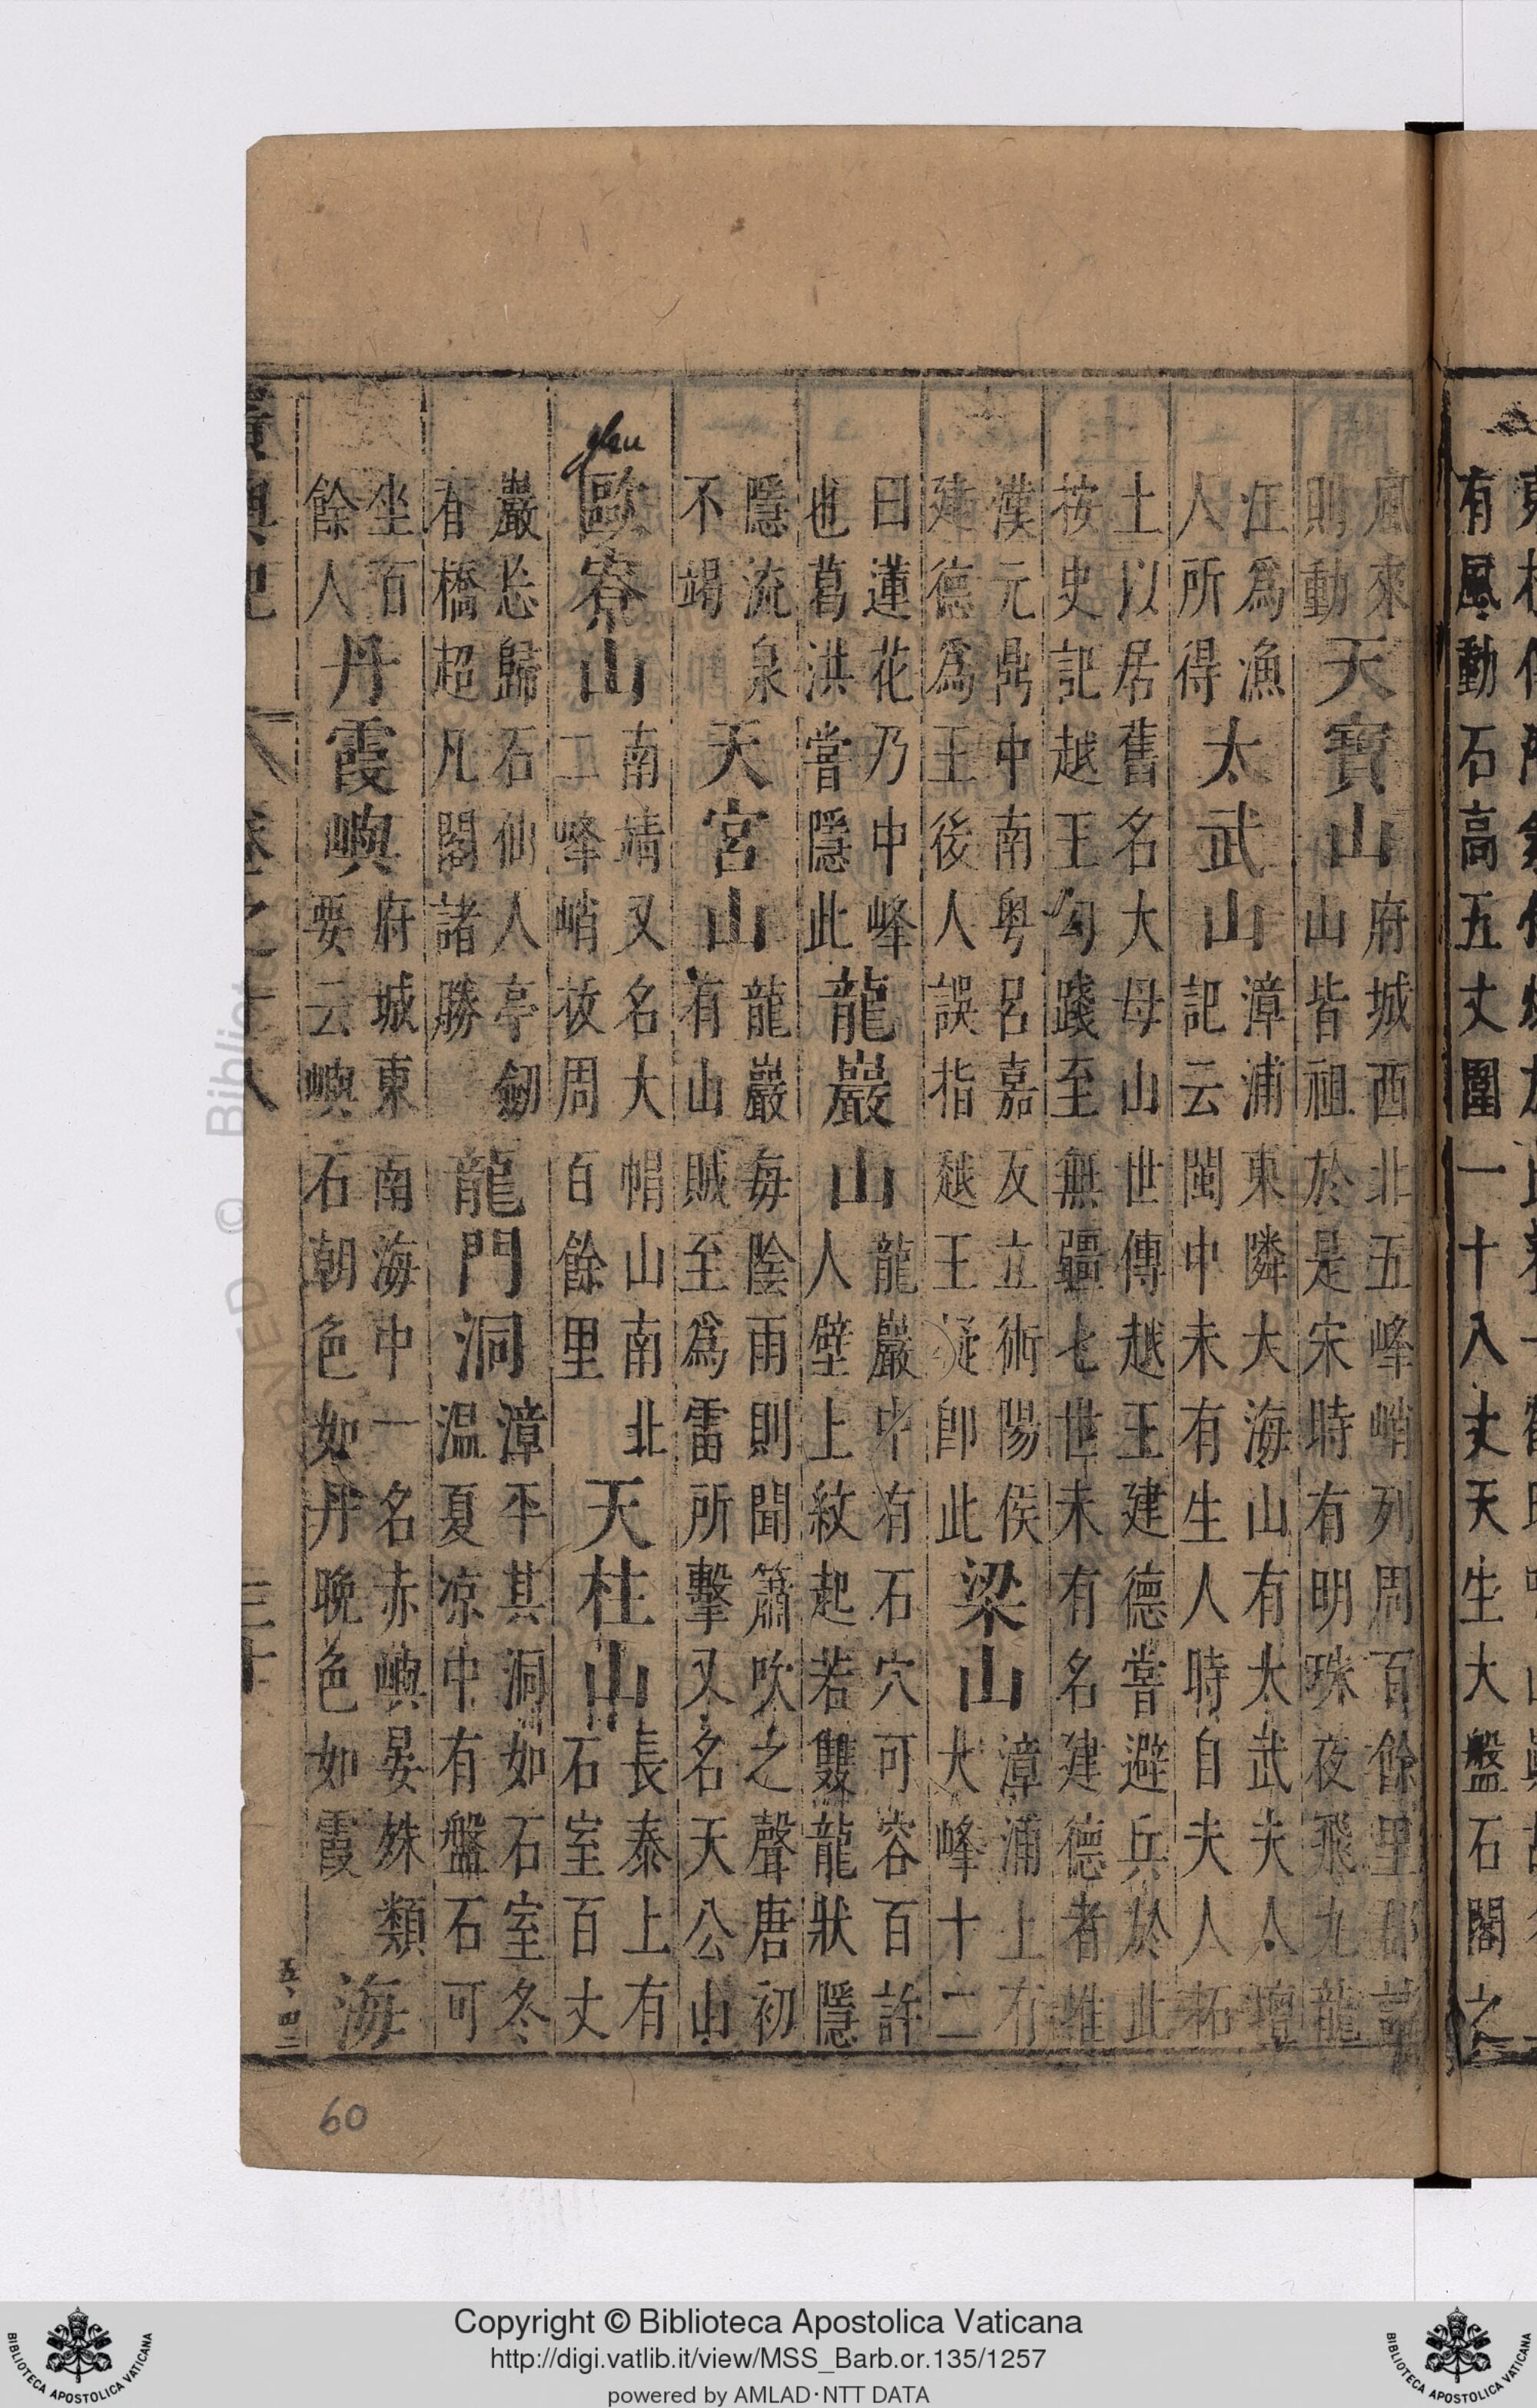 有風動石高五丈圍一十八丈天生大盤石閣之
風來
則動
天寶山
府城西北五峰峭列周百餘里郡誌
山皆祖於是宋時有明珠夜飛九龍
江爲漁
人所得
太武山
漳浦東隣大海山有太武夫人壇
記云閩中未有生人時自夫人拓
土以居舊名大母山世傳越王建德嘗避兵於此
按史記越王勾踐至無疆七世未有名建德者惟
漢元鼎中南粤呂嘉反立術陽侯
建德爲王後人誤指越王疑卽此
梁山
漳浦上有
大峰十二
曰蓮花乃中峰
也葛洪嘗隱此
龍巖山
龍巖中有石穴可容百許
人壁上紋起若雙龍狀隱
隱流泉
不竭
天宮山
龍巖每陰雨則聞簫吹之聲唐初
有山賊至爲雷所擊又名天公山
歐寮山
南靖又名大帽山南北
二峰峭拔周百餘里
天柱山
長泰上有
石室百丈
巖忘歸石仙人亭劒
有橋超凡閣諸勝
龍門洞
漳平其洞如石室冬
溫夏凉中有盤石可
坐百
餘人
丹霞嶼
府城東南海中一名赤嶼晏姝類
要云嶼石朝色如丹晚色如霞
海
卷之十八
三十
五、四二
60
Copyright © Biblioteca Apostolica Vaticana
http://digi.vatlib.it/view/MSS_Barb.or.135/1257
powered by AMLAD·NTT DATA
BIBLIOTECA APOSTOLICA VATICANA
BIBLIOTECA APOSTOLICA VATICANA